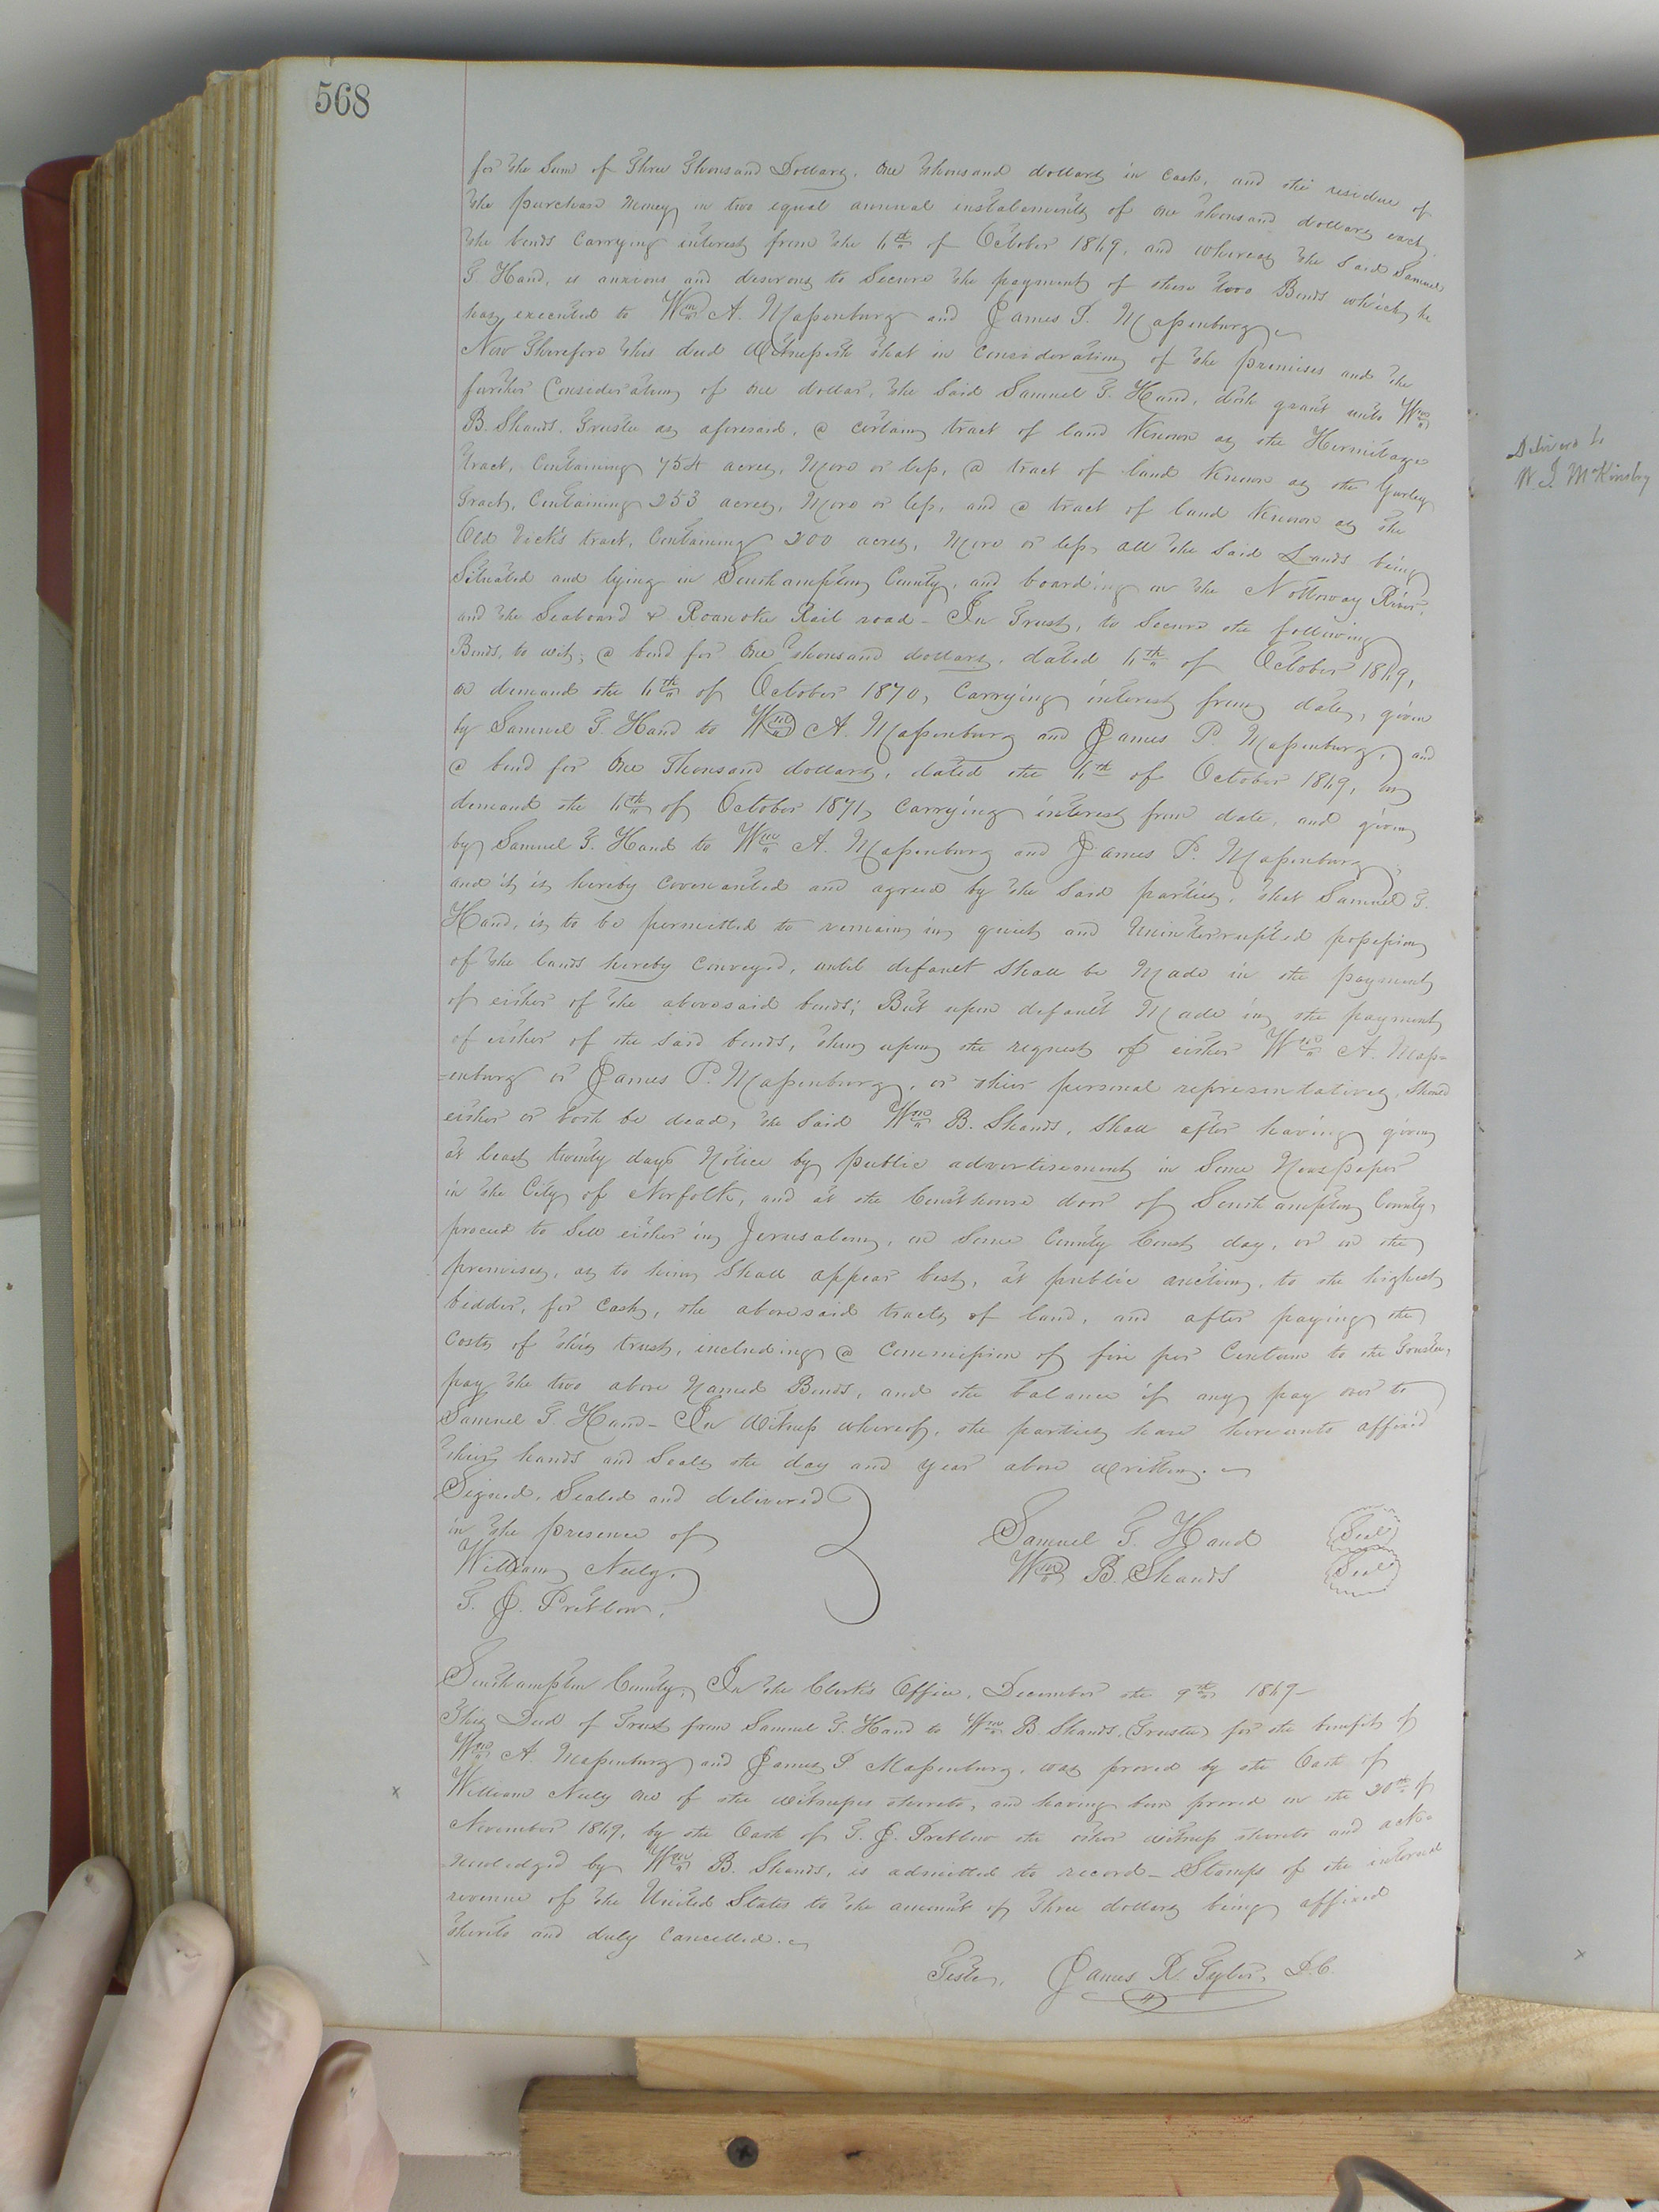 568
for the Sum of Three Thousand Dollars, One thousand dollars in Cash, and the residue of
the purchase Money in two equal annual instalments of One thousand dollars each,
the bonds Carrying interest from the 6th of October 1869, and whereas the Said Samuel
T. Hand, is anxious and desirous to Secure the payment of these two Bonds which he
has executed to Wm A. Massenburg and James P. Massenburg
Now Therefore this deed Witnesseth that in Consideration of the premises and the
further Consideration of One dollar, the Said Samuel T. Hand, doth grant unto Wm
B. Shands, Trustee as aforesaid, a certain tract of land Known as the Hermitage
tract, Containing 754 acres, More or less, a tract of land Known as the Gurley
Tract, Containing 253 acres, More or less, and a tract of land Known as the
Old Vick's tract, Containing 200 acres, More or less, all the Said Lands being
Situated and lying in Southampton County, and boarding on the Nottoway River,
and the Seaboard & Roanoke Rail road - In Trust, to Secure the following
Bonds, to wit; a bond for One thousand dollars, dated 6th of October 1869,
on demand the 6th of October 1870, Carrying interest from date, given
by Samuel T. Hand to Wm A. Massenburg and James P. Massenburg, and
a bond for One Thousand dollars, dated the 6th of October 1869, on
demand the 6th of October 1871, Carrying interest from date, and given
by Samuel T. Hand to Wm A. Massenburg and James P. Massenburg;
and it is hereby Covenanted and agreed by the Said parties, that Samuel T.
Hand, is to be permitted to remain in quiet and Uninterrupted possession
of the lands hereby Conveyed, until default Shall be Made in the payment
of either of the abovesaid bonds; But upon default Made in the payment
of either of the said bonds, then upon the request of either Wm A. Mass=
=enburg or James P. Massenburg, or their personal representatives, Should
either or both be dead, the Said Wm B. Shands, Shall after having given
at least twenty days Notice by public advertisement in Some Newspaper
in the City of Norfolk, and at the Court house door of Southampton County,
proceed to Sell either in Jerusalem, on Some County Court day, or on the
premises, as to him Shall appear best, at public auction, to the highest
bidder, for Cash, the abovesaid tracts of land, and after paying the
Costs of this trust, including a Commission of five per Centum to the Trustee,
pay the two above Named Bonds, and the balance if any pay over to
Samuel T. Hand - In Witness whereof, the parties have hereunto affixed
their hands and Seals the day and year above Written.
Signed, Sealed and delivered
in the presence of
William Neely,
T. J. Pretlow,
Samuel T. Hand Seal
Wm B. Shands Seal
Southampton County, In the Clerk's Office, December the 9th 1869-
This Deed of Trust from Samuel T. Hand to Wm B. Shands, (Trustee) for the benefit of
Wm A. Massenburg and James P. Massenburg, was proved by the Oath of
William Neely one of the Witnesses thereto, and having been proved on the 20th of
November 1869, by the Oath of T. J. Pretlow the other Witness thereto and ack=
nowledged by Wm B. Shands, is admitted to record - Stamps of the internal
revenue of the United States to the amount of Three dollars being affixed
thereto and duly Cancelled.
Teste, James R. Tyler, D.C.
Delivered to
W. J. McKinsbry